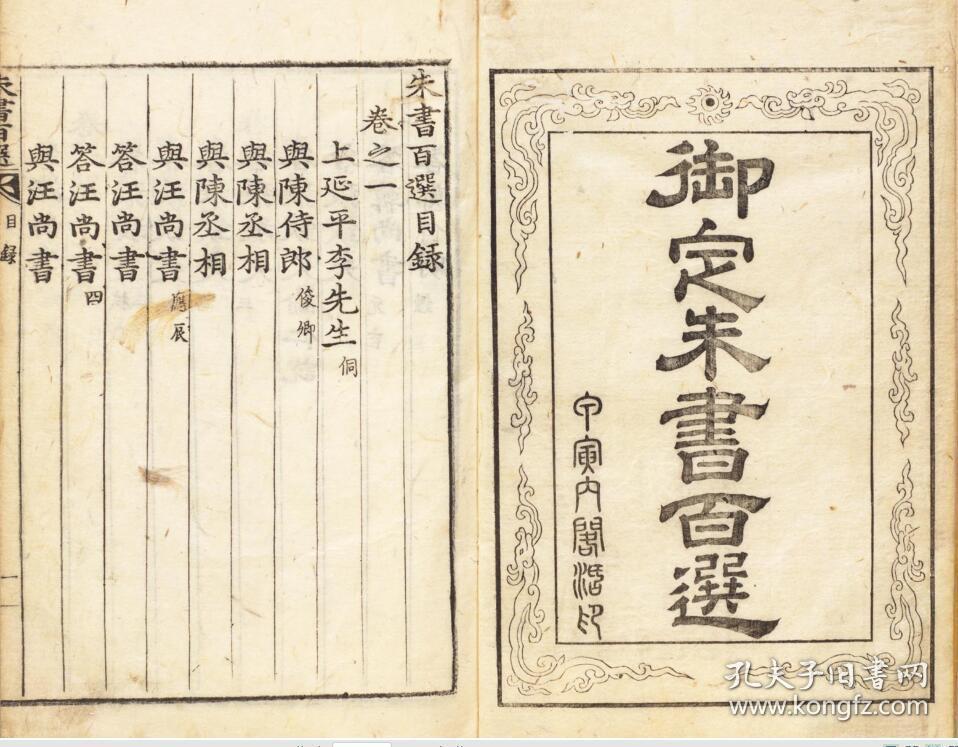 御定朱書百選
甲寅內閣活印
朱書百選目錄
卷之一
上延平李先生侗
與陳侍郎俊卿
與陳丞相
與陳丞相
與汪尚書應辰
答汪尚書
答汪尚書四
與汪尚書
朱書百選 目錄 一
孔夫子旧书网
www.kongfz.com